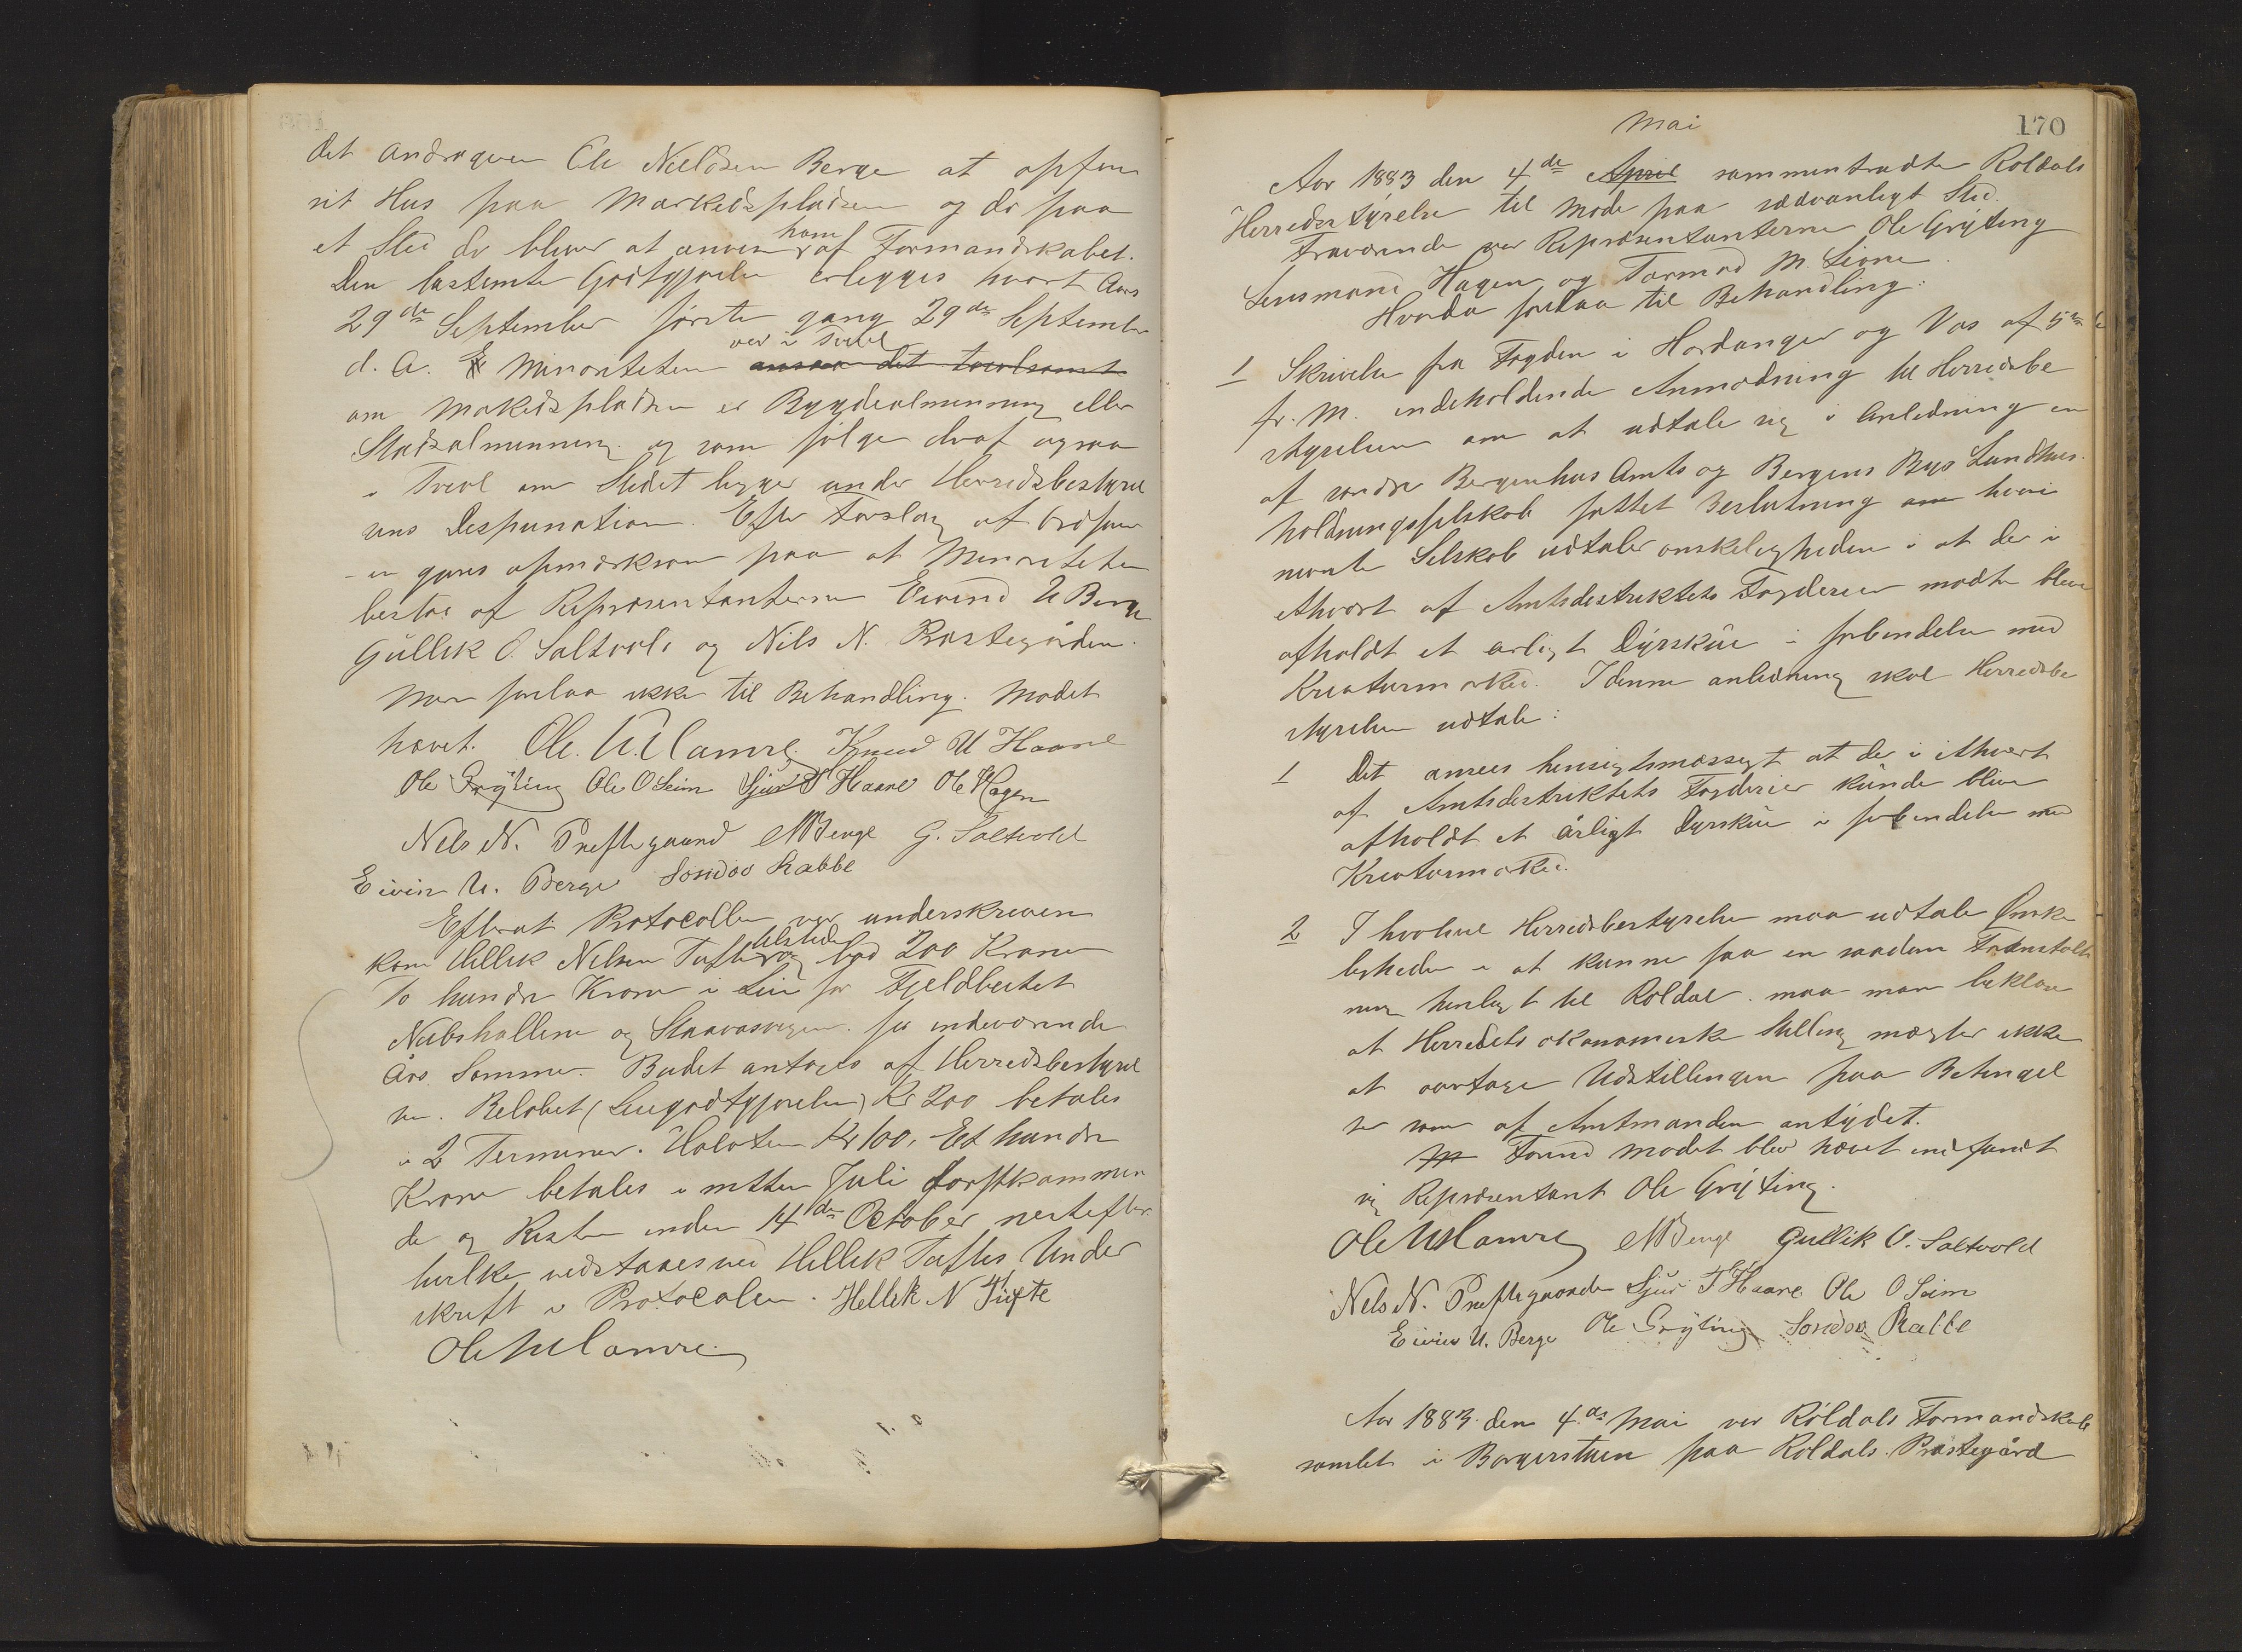 det Andragen Ole Neelssen Berge at opføre
sit Hus paa Markedspladsen og da paa
et Sted der bliver at anvise ham af Formandskabet.
Den bestemte Godtgjørelse erlegges hvert Aars
29de September første gang 29de September
d. A. Minoriteten var i Tvivl ansaa det tvivlsomt
om Makedspladsen er Bygdealmenning eller
Statsalmenning og som følge deraf ogsaa
i Tvivl om Stedet ligger under Herredsbestyrel
sens Desponation. Efter Forslag af Ordføre
-en gjøres opmærksom paa at Minoriteten
bestod af Repræsentanterne Eivind U Berge
Gullik O. Saltvold og Nils N. Præstegården.
Mere forelaa ikke til Behandling. Mødet
hævet. Ole. U. Hamre. Knud U Haare
Ole Grýting Ole O Seim Sjur T Haare Ole Hagen
Nels N. Prestegaard N Berge G. Saltvold
Eivin U. Berge Sondov Rabbe
Efterat Protocollen var underskreven
kom Hellik Nelsen Tufte tilstede og bød 200 Kroner
To hundre Kroner i Leie for Fjeldbeitet
Nubshallene og Staavasvegen for indeværende
Års Sommer. Budet antoges af Herredsbestyrel
sen. Beløbet (Leiegodtgjørelsen) Kr 200 betales
i 2 Terminer. Halvten Kr 100, Et hundre
Kroner betales i mitten Juli førstkommen
de og Resten inden 14de October nestefter
hvilke vedstaaes ved Hellik Tuftes Under
skrift i Protocolen. Hellik N Tufte
Ole U Hamre.
170
Mai
Aar 1883 den 4de April sammentraadte Røldals
Herredsstýrelse til Møde paa sædvanligt Sted.
Fraværende var Repræsentanterne Ole Grýting
Lensmand Hagen og Tormod M. Seim.
Hvorda forelaa til Behandling:
1 Skrivelse fra Fogden i Hardanger og Vos af 5te
fr. M. indeholdende Anmodning til Herredsbe
styrelsen om at udtale sig i Anledning en
af søndre Bergenhus Amts og Bergens Bys Landhus
holdningsselskab fattet Beslutning om hvori
nævnte Selskab udtaler ønskeligheden i at der i
ethvert af Amtsdistriktets Fogderier maatte blive
afholdt et årligt Dýrskúe i forbindelse med
Kreaturmarked. I denne anledning skal Herredsbe
styrelsen udtale:
1 Det ansees hensigtsmæssigt at der i ethvert
af Amtsdistriktets Fogderier kúnde blive
afholdt et årligt Dyrskúe i forbindelse med
Kreaturmarked.
2 I hvorvel Herredsbestyrelsen maa udtale Ønske
ligheden i at kunne faa en saadan Foranstalt
ning henlagt til Røldal maa man beklage
at Herredets økonomiske Stilling mægter ikke
at overtage Udstillingen paa Betingel
ser som af Amtmanden antýdet.
Forend mødet blev hævet indfandt
sig Repræsentant Ole Grýting.
Ole U Hamre N Berge Gullik O. Saltvold
Nels N. Prestegaarden Sjur T Haare Ole O Seim
Eivin U. Berge Ole Grýting Sondov Rabbe
Aar 1883 den 4de Mai var Røldals Formandskab
samlet i Borgerstuen paa Røldals Præstegård